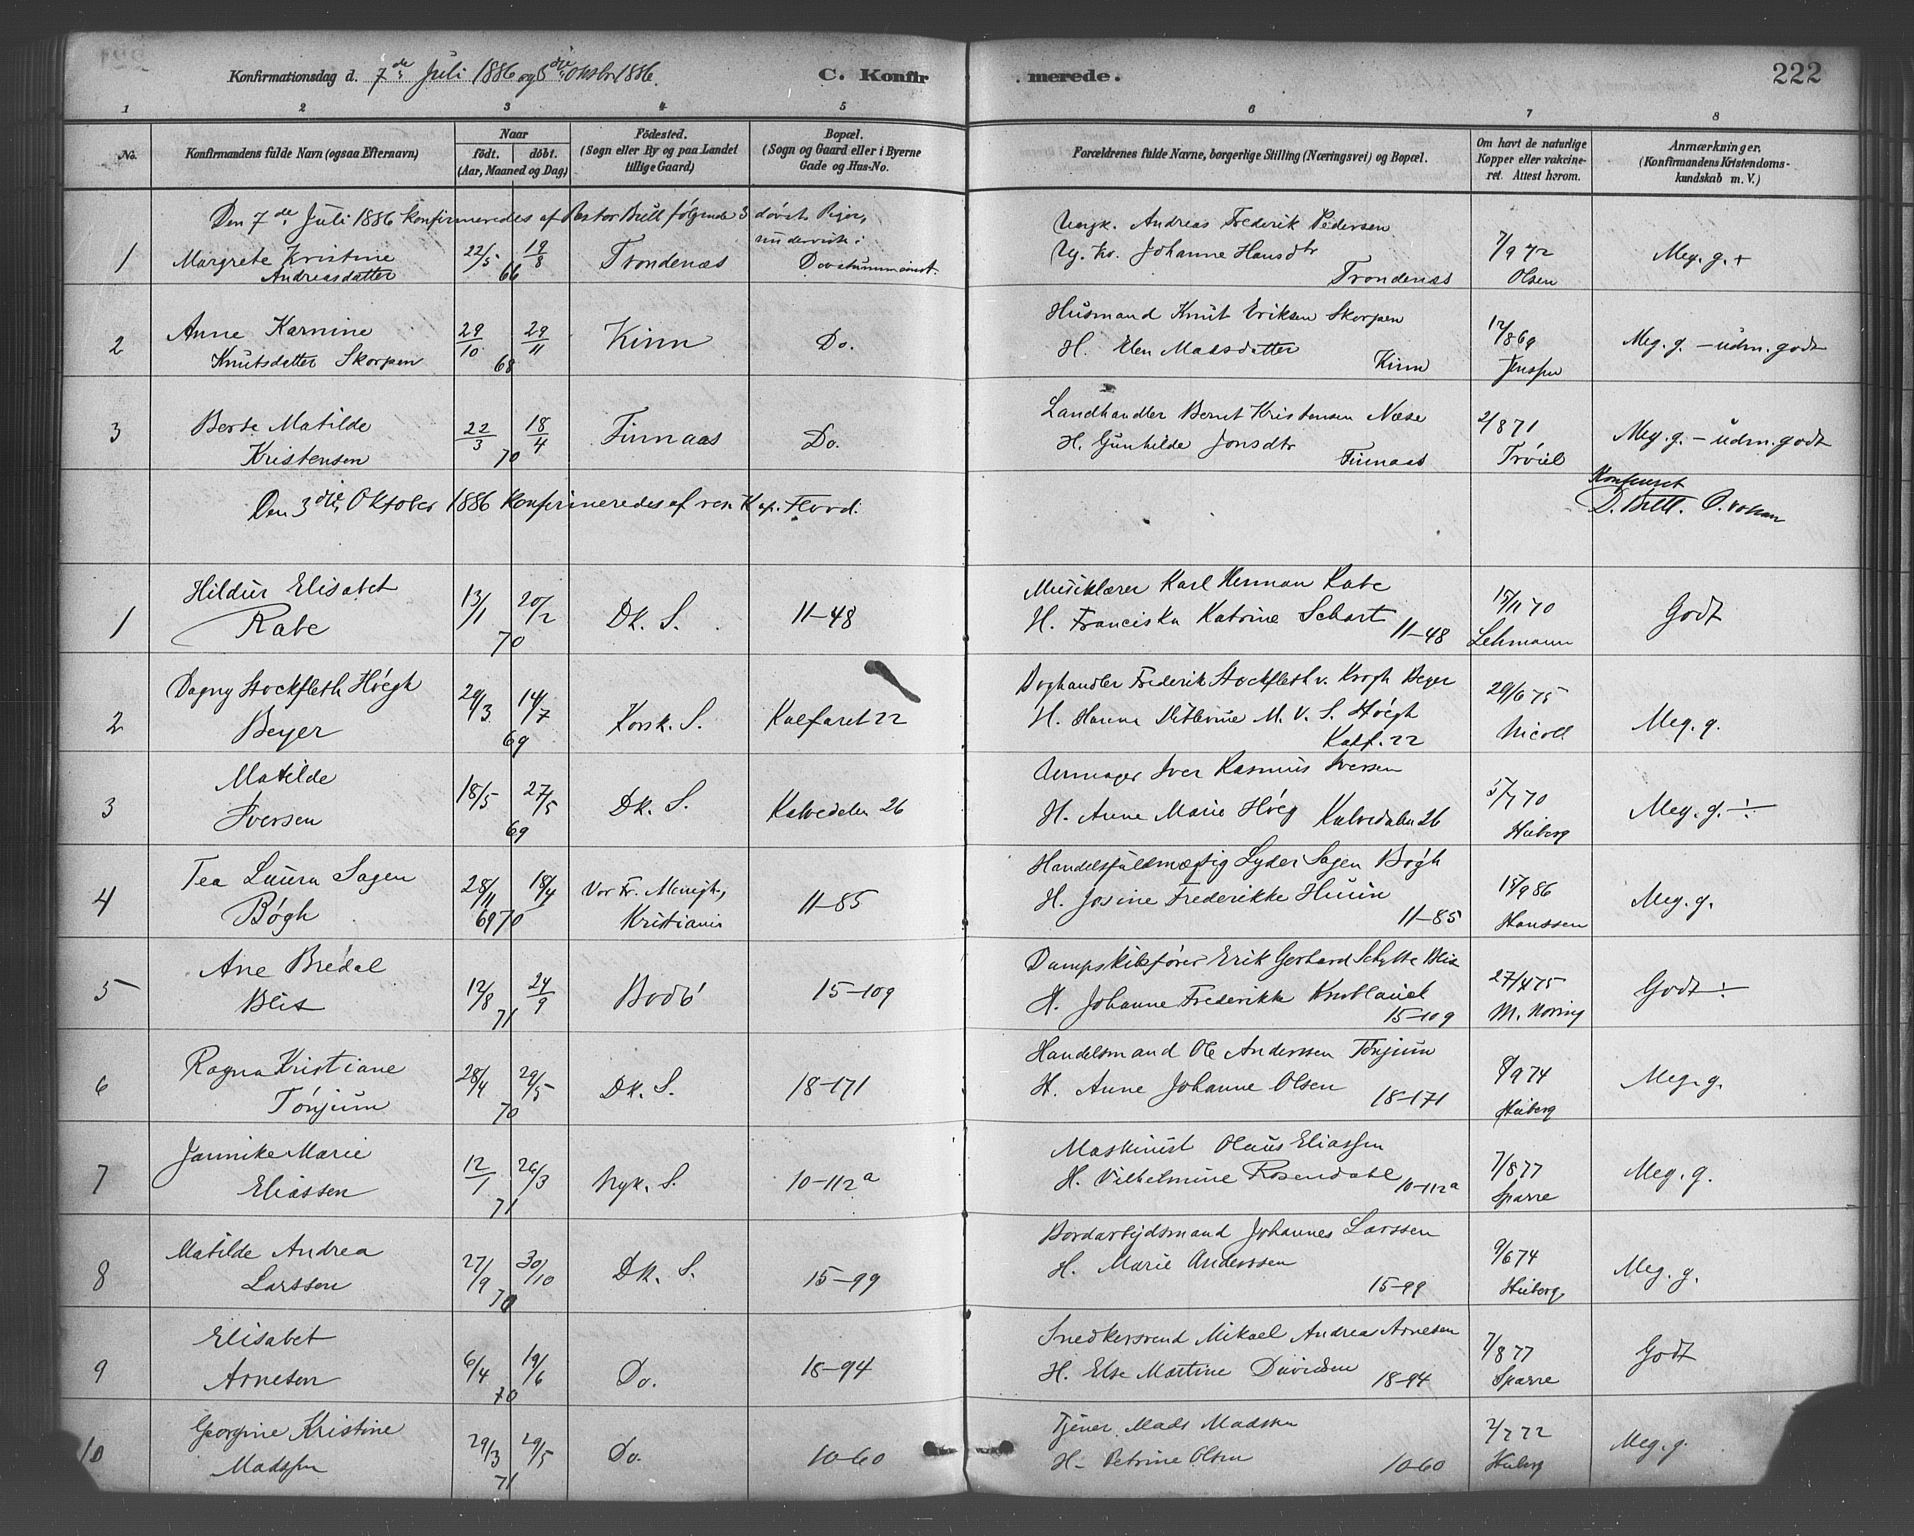 Konfirmationsdag d. 7de Juli 1886 og 3die Oktober 1886. C. Konfirmerede. 222
1 2 3 4 5 6 7 8
No.
Konfirmandens fulde Navn (ogsaa Efternavn)
Naar
födt. döbt.
(Aar, Maaned og Dag)
Födested.
(Sogn eller By og paa Landet
tillige Gaard)
Bopæl.
(Sogn og Gaard eller i Byerne
Gade og Hus-No.
Forældrenes fulde Navne, borgerlige Stilling (Næringsvei) og Bopæl.
Om havt de naturlige
Kopper eller vakcine-
ret. Attest herom.
Anmærkninger.
(Konfirmandens Kristendoms-
kundskab m. V.)
Den 7de Juli 1886 konfirmeredes af Pastor Brill følgende 3 døvst. Piger,
1 Margrete Kristine 22/5 19/8 Trondenæs
Andreasdatter 66
Ungk. Andreas Frederik Pedersen
Johanne Hansdtr
Trondenæs
7/9 72
Olsen
Meg. g. +
2 Anne Karnine 29/10 29/11 Kinn Do.
Knutsdatter Skorpen 68
Husmand Knut Eriksen Skorpen
H. Elen Madsdatter
Kinn
12/8 69
Jenssen
Meg. g. – udm. godt
3 Berte Matilde 22/3 18/4 Finnaas Do.
Kristensen 70
Landhandler Bernt Kristensen Næse
H. Gunhilde Jonsdtr
Finnaas
2/8 71
Meg. g. – udm. godt
Den 3die Oktober 1886 konfirmeredes af res. Kap. Hvrd.
1 Hildur Elisabet 13/1 20/2 Dk. S. 11–48
Rabe 70
Musiklærer Karl Herman Rabe
H. Franciska Katrine Schart 11–48
15/11 70
Lehmann
Godt
2 Dagny Stockfleth Høegh 29/3 14/7 Korsk. S. Kalfaret 22
Beyer 69
Boghandler Frederik Stockfleth v. Krogh Beyer
H. Hanna Ditlevine M. V. S. Høegh
Kalf. 22
29/6 75
Nicoll
Meg. g.
3 Matilde 18/5 27/5 Dk. S. Kalvedalen 26
Iversen 69
Urmager Iver Rasmus Iversen
H. Anne Marie Høeg Kalvedalen 26
5/7 70
Heiberg
Meg. g. ÷
4 Tea Laura Sagen 28/11 18/4 Vor Fr. Menigh., 11–85
Bøgh 69 70 Kristiania
Handelsfuldmægtig Lyder Sagen Bøgh
H. Josine Frederikke Huun
11–85
15/9 86
Hanssen
Meg. g.
5 Ane Bredal 12/8 24/9 Bodø 15–109
Blix 71
Dampskibsfører Erik Gerhard Schytte Blix
H. Johanne Frederikke Knoblauch
15–109
27/4 75
M. Noring
Godt ÷
6 Ragna Kristiane 28/4 29/5 Dk. S. 18–171
Tønjum 70
Handelsmand Ole Anderssen Tønjum
H. Anne Johanne Olsen 18–171
8/9 74
Heiberg
Meg. g.
7 Jannike Marie 12/1 26/3 Nyk. S. 10–112a
Eliassen 71
Maskinist Olaus Eliassen
H. Vilhelmine Rosendahl 10–112a
7/8 77
Sparre
Meg. g.
8 Matilde Andrea 27/9 30/10 Dk. S. 15–99
Larssen 70
Bordarbejdsmand Johannes Larssen
H. Marie Anderssen
15–99
9/6 74
Heiberg
Meg. g.
9 Elisabet 6/4 19/6 Do. 18–94
Arnesen 70
Snedkersvend Mikael Andrea Arnesen
H. Else Martine Davidsen 18–94
7/8 77
Sparre
Godt
10 Georgine Kristine 29/3 29/5 Do. 10–60
Madssen 71
Tjener Mads Madssen
H. Petrine Olsen 10–60
2/7 72
Heiberg
Meg. g.